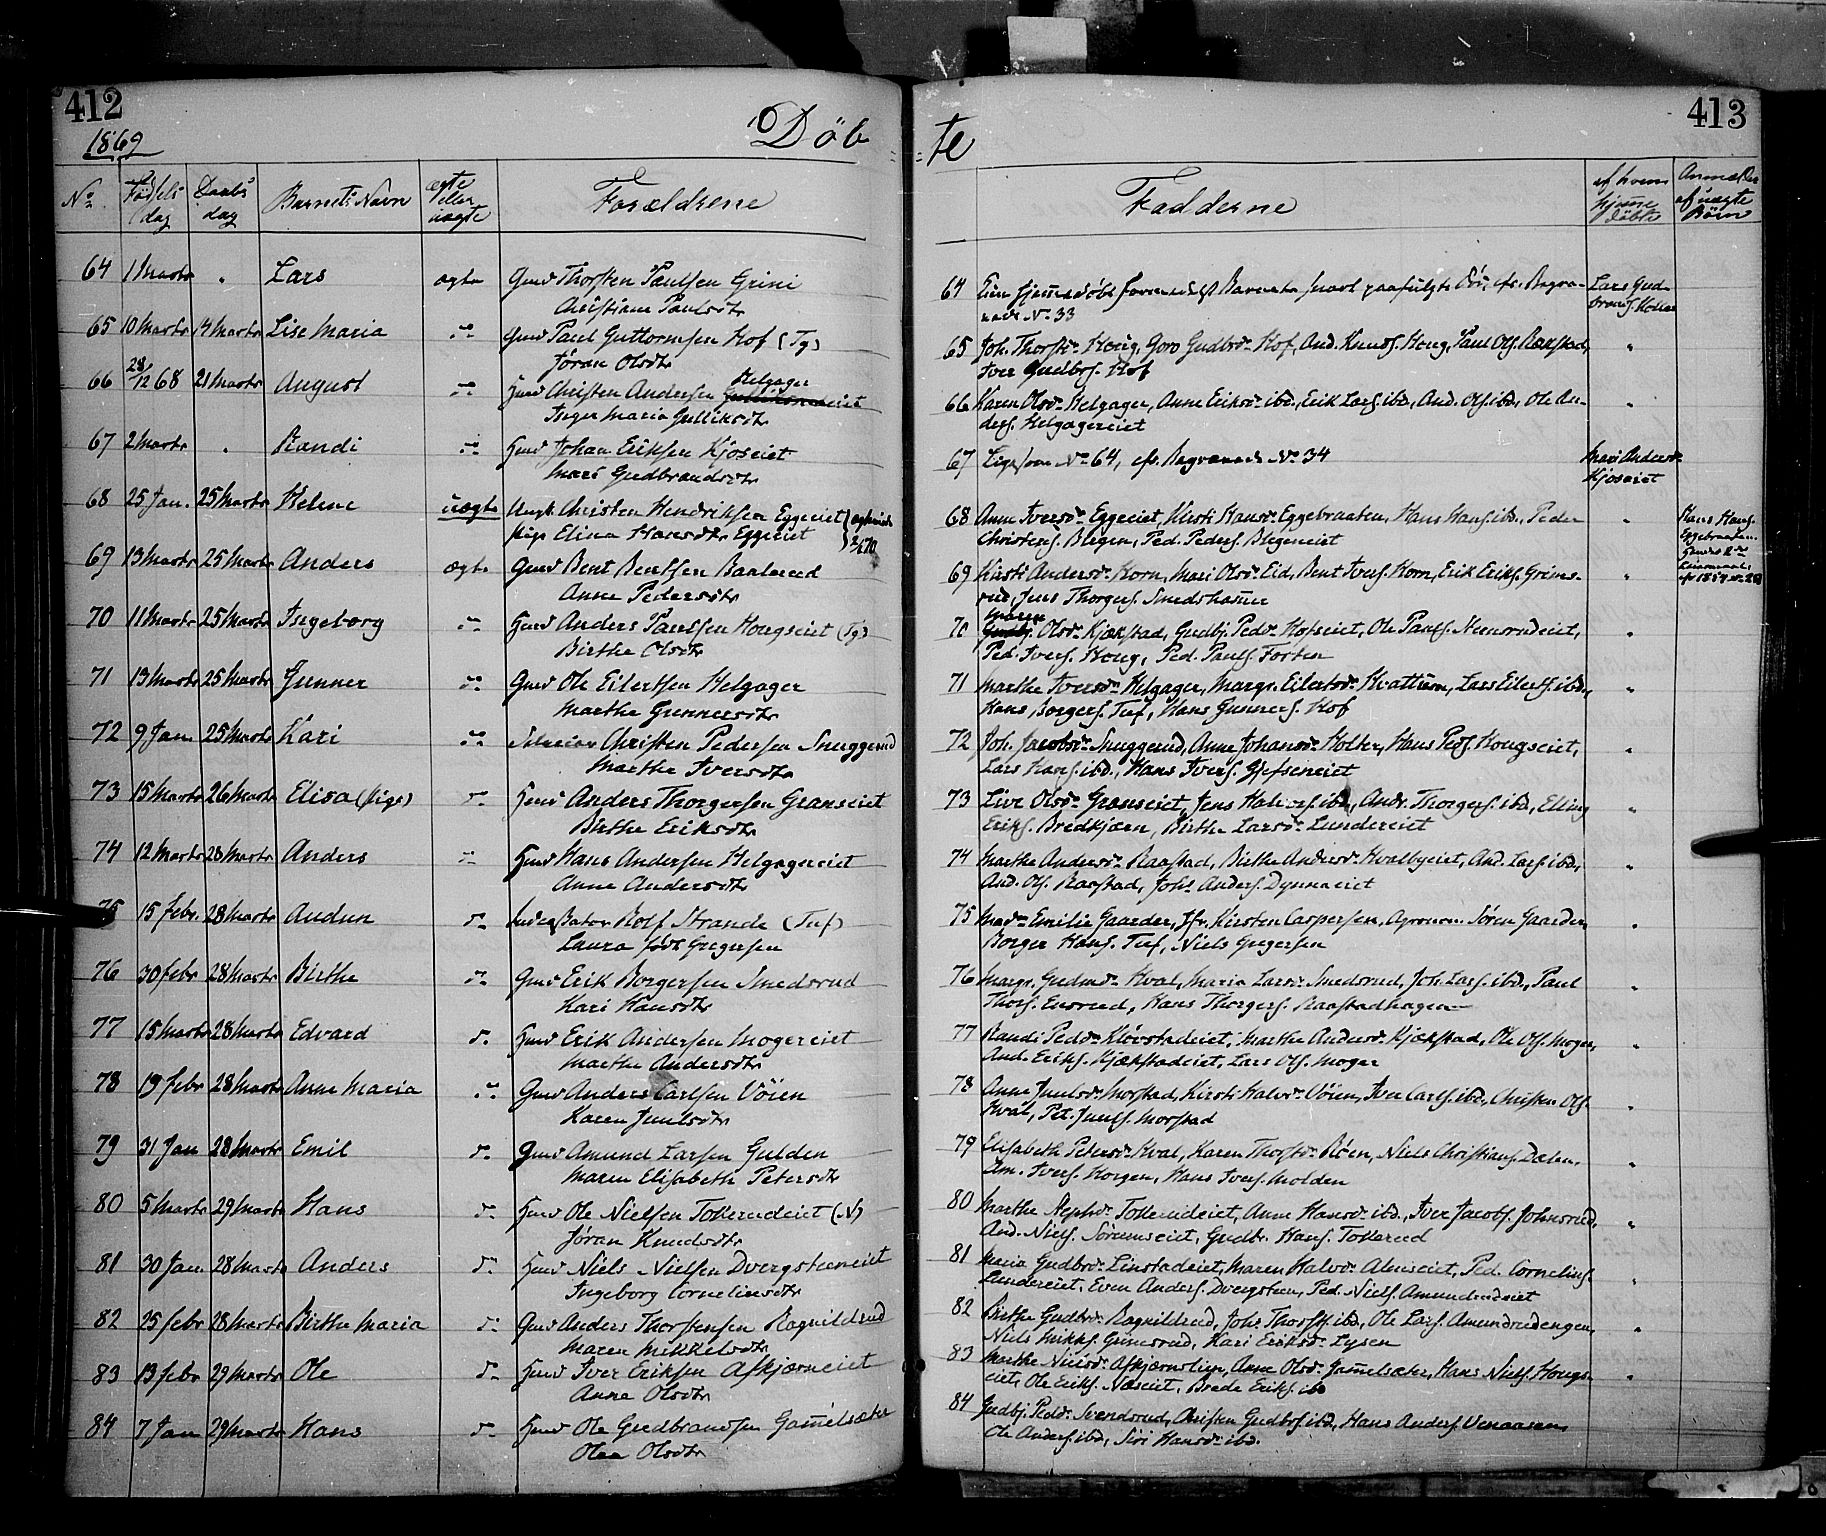 412
1869
Døb
No
Fødsels
dag
Daabs
dag
Barnets Navn
ægte
eller
uægte
Forældrene
64 1 Marts " Lars ægte Gmd Thorsten Paulsen Grini
Christiane Paulsdtr
65 10 Marts 14 Marts Lise Maria do Gmd Paul Guttormsen Hof (Tg)
Jøran Olsdtr
66 28/12 68 21 Marts August do Hmd Christen Andersen Helgager
Inger Maria Gulliksdtr
67 2 Marts " Randi do Hmd Johan Eriksen Kjoseiet
Mari Gudbrandsdtr
68 25 Jan. 25 Marts Helene uægte Ungk. Christen Hendriksen Eggeeiet
Pige Elina Hansdtr Eggeeiet
69 13 Marts 25 Marts Anders ægte Gmd Bent Bentsen Baalerud
Anne Pedersdtr
70 11 Marts 25 Marts Ingeborg do Hmd Anders Paulsen Hougseiet (Tg)
Birthe Olsdtr
71 13 Marts 25 Marts Gunner do Gmd Ole Eilertsen Helgager
Marthe Gunnersdtr
72 9 Jan. 25 Marts Kari do Selveier Christen Pedersen Snuggerud
Marthe Iversdtr
73 15 Marts 26 Marts Elisa (pige) do Hmd Anders Thorgersen Granseiet
Birthe Eriksdtr
74 12 Marts 28 Marts Anders do Hmd Hans Andersen Helgagereiet
Anne Andersdtr
75 15 febr. 28 Marts Audun do Rolf Strande (Tuf)
Laura født Gregersen
76 20 febr 28 Marts Birthe do Gmd Erik Borgersen Smedsrud
Kari Hansdtr
77 15 Marts 28 Marts Edvard do Hmd Erik Andersen Mogereiet
Marthe Andersdtr
78 19 febr 28 Marts Anne Maria do Gmd Anders Carlsen Vöien
Karen Juulsdtr
79 31 Jan 28 Marts Emil do Gmd Amund Larsen Gulden
Maren Elisabeth Petersdtr
80 5 Marts 29 Marts Hans do Hmd Ole Nielsen Tokerudeiet (N)
Jøran Knudsdtr
81 30 Jan. 28 Marts Anders do Hmd Niels Nielsen Dvergsteeneiet
Ingeborg Corneliusdtr
82 25 febr 28 Marts Birthe Maria do Gmd Anders Thorstensen Ragnildsrud
Maren Mikkelsdtr
83 13 febr 29 Marts Ole do Hmd Iver Eriksen Askjærneiet
Anne Olsdtr
84 7 Jan 29 Marts Hans do Hmd Ole Gudbrandsen Gamelsæter
Olea Olsdtr
413
te
Fadderne
af hvem
hjemme
døbte
Anmældte
af uægte
Børn
64 Kun hjemmedøbt formedelst Barnets snart paafulgte Død, cfr. Begra-
vede No 33
Lars Gud-
65 Joh. Thorstdr Houg, Goro Gudbrdr Hof, And. Knuds. Houg, Paul Ols. Rækstad,
Iver Gudbrs. Hof
66 Karen Olsdr Helgager, Anne Eriksdr ibd., Erik Lars. ibd., And. Ols. ibd., Ole An-
ders. Helgagereiet
67 Ligesom No 64, cfr. Begravede No 34
Mari Andersdr
Kjoseiet
68 Anne Iversdr Eggeeiet, Kirsti Hansdr Eggebraaten, Hans Hans. ibd., Peder
Christens. Blegen, Ped. Peders. Blegeneiet
Hans Hans.
Eggebraaten
69 Kirsti Andersdr Horn, Mari Olsdr Eid, Bent Ivers. Horn, Erik Eriks. Grims-
rud, Jens Thorgers. Smedshammer
70 Maren Olsdr Kjækstad, Gudbj. Pedr Hofseiet, Ole Pauls.
Ped. Ivers. Houg, Ped. Pauls. Forten
71 Marthe Iversdr Helgager, Margr. Eilertsdr Hvattum, Lars Eilerts. ibd.,
Hans Borgers. Tuf, Hans Gunners. Hof
72 Joh. Jacobsdr Snuggerud, Anne Johansdr Holter, Hans Peds. Hougseiet,
Lars Hans. ibd., Hans Ivers. Gjefseneiet
73 Live Olsdr Granseiet, Jens Halvors. ibd., Andr. Thorgers. ibd., Elling
Eriks. Bredkjærn, Birthe Larsdr Lundereiet
74 Marthe Andersdr Raastad, Birthe Andersdr Hvalbyeiet, And. Lars. ibd.,
And. Ols. Raastad, Johs Anders. Dynnaeiet
75 Madm Emilie Gaarder, Jfr. Kirsten Caspersen, Agronom Søren Gaarder,
Borger Hans. Tuf, Niels Gregersen
76 Margr. Gudmdr Hval, Maria Larsdr Smedsrud, Joh. Lars. ibd., Paul
Thors. Ensrud, Hans Thorgers. Raastadhagen
77 Randi Pedsdr Klöovstadeiet, Marthe Andersdr Kjækstad, Ole Ols. Moger,
And. Eriks. Kjækstadeiet, Lars Ols. Moger
78 Anne Juulsdr Morstad, Kirsti Halvdr Vöien, Iver Carls. ibd., Christen Ols.
Hval, Ped. Juuls. Morstad
79 Elisabeth Petersdr Hval, Karen Thorstdr Röen, Niels Christians. Dælen,
Am. Ivers. Horgen, Hans Ivers. Molden
80 Marthe Stephdr Tokerudeiet, Anne Hansdr ibd., Iver Jacobs. Johnsrud,
And. Niels. Sörumseiet, Gudbr. Hans. Tokerud
81 Maria Gudbrdr Linstadeiet, Maren Halvdr Almseiet, Ped. Cornelius.
Lundereiet, Even Anders. Dvergsteen, Ped. Niels. Amundrudeiet
82 Birthe Gudbrdr Ragnildsrud, Joh. Thorsts. ibd., Ole Lars. Amundrudengen,
Niels Mikks. Grimsrud, Kari Eriksdr Lysen
83 Marthe Nielsdr Askjærnslien, Anne Olsdr Gamelsæter, Hans Niels. Hougs-
eiet, Ole Eriks. Næseiet, Brede Eriks. ibd
84 Gudbj. Pedsdr Svendsrud, Christen Gudbrs. ibd., Hans Anders. Venaasen,
Ole Anders. ibd., Siri Hansdr ibd.